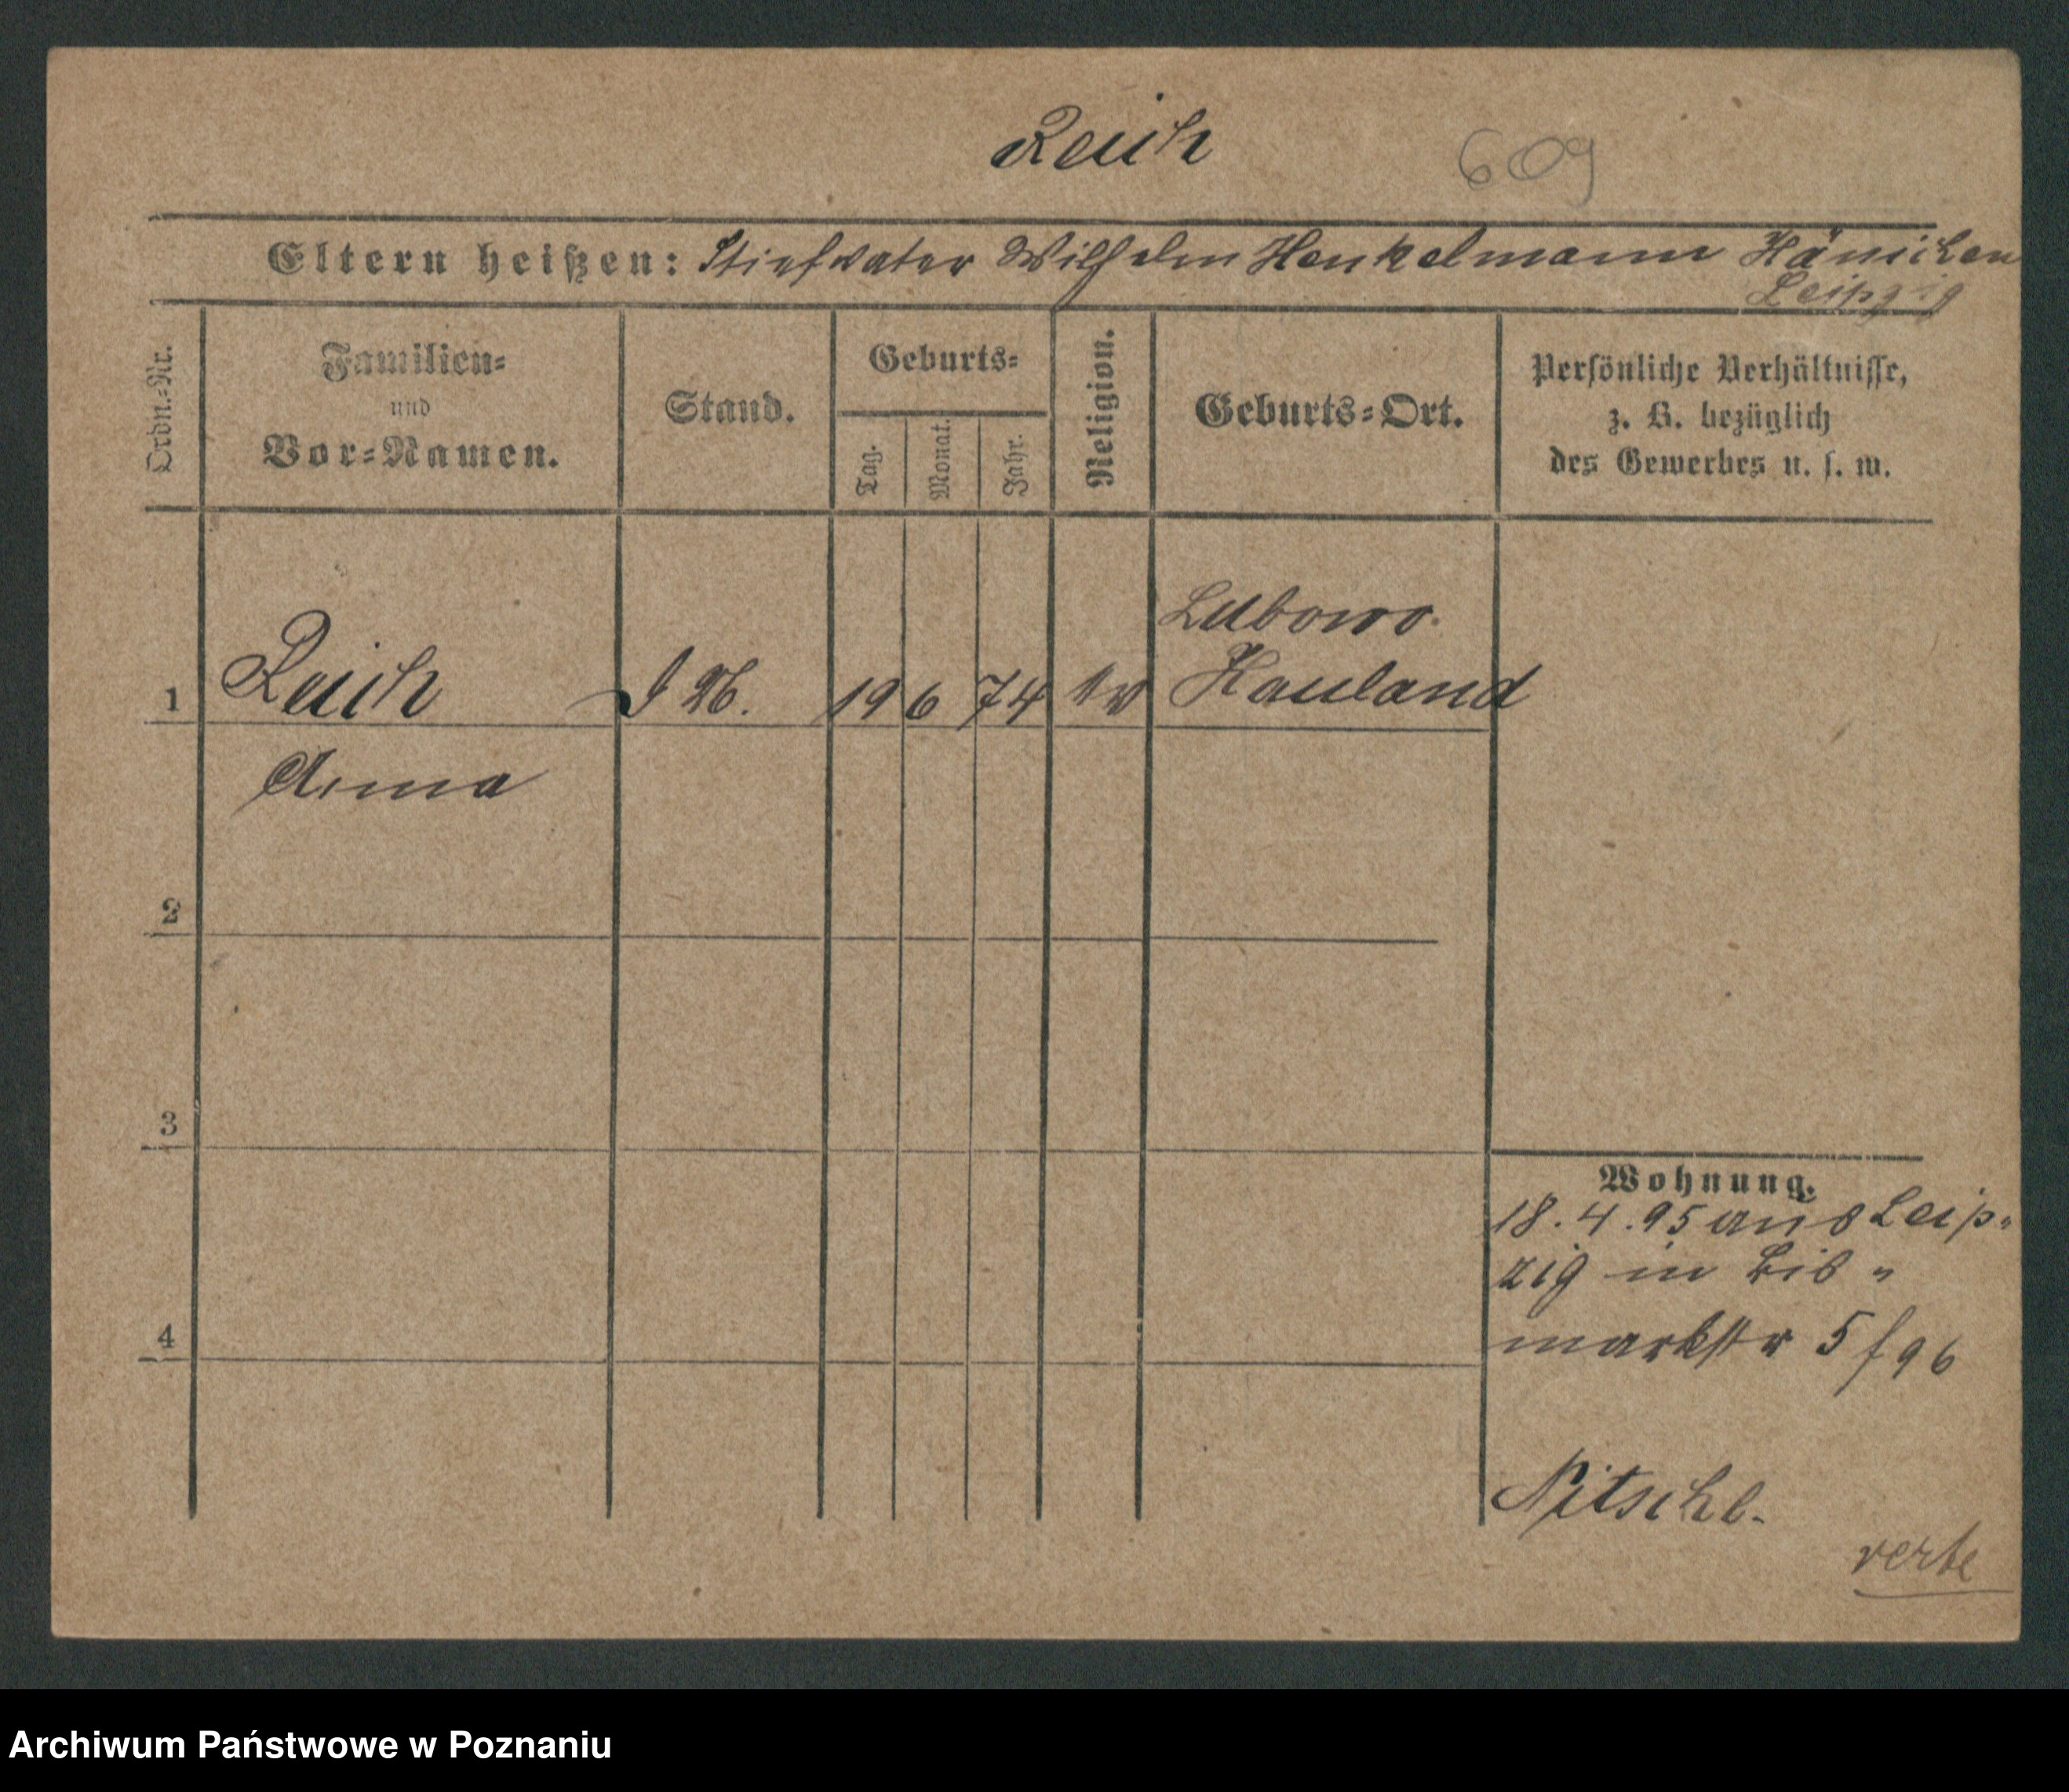 Reich 609
Eltern heißen: Stiefvater Wilhelm Henkelmann Hänichen
Leipzig
Ordn.-Nr.
Familien-
und
Vor-Namen.
Stand.
Geburts-
Tag.
Monat.
Jahr.
Religion.
Geburts-Ort.
Persönliche Verhältnisse,
z. B. bezüglich
des Gewerbes u. s. w.
Lubowo
1 Reich 19 6 74 Hauland
Anna
2
3
4
Wohnung.
18.4.95 aus Leip-
zig in Bis-
markstr 5 f 96
Nitschk.
verte
Archiwum Państwowe w Poznaniu